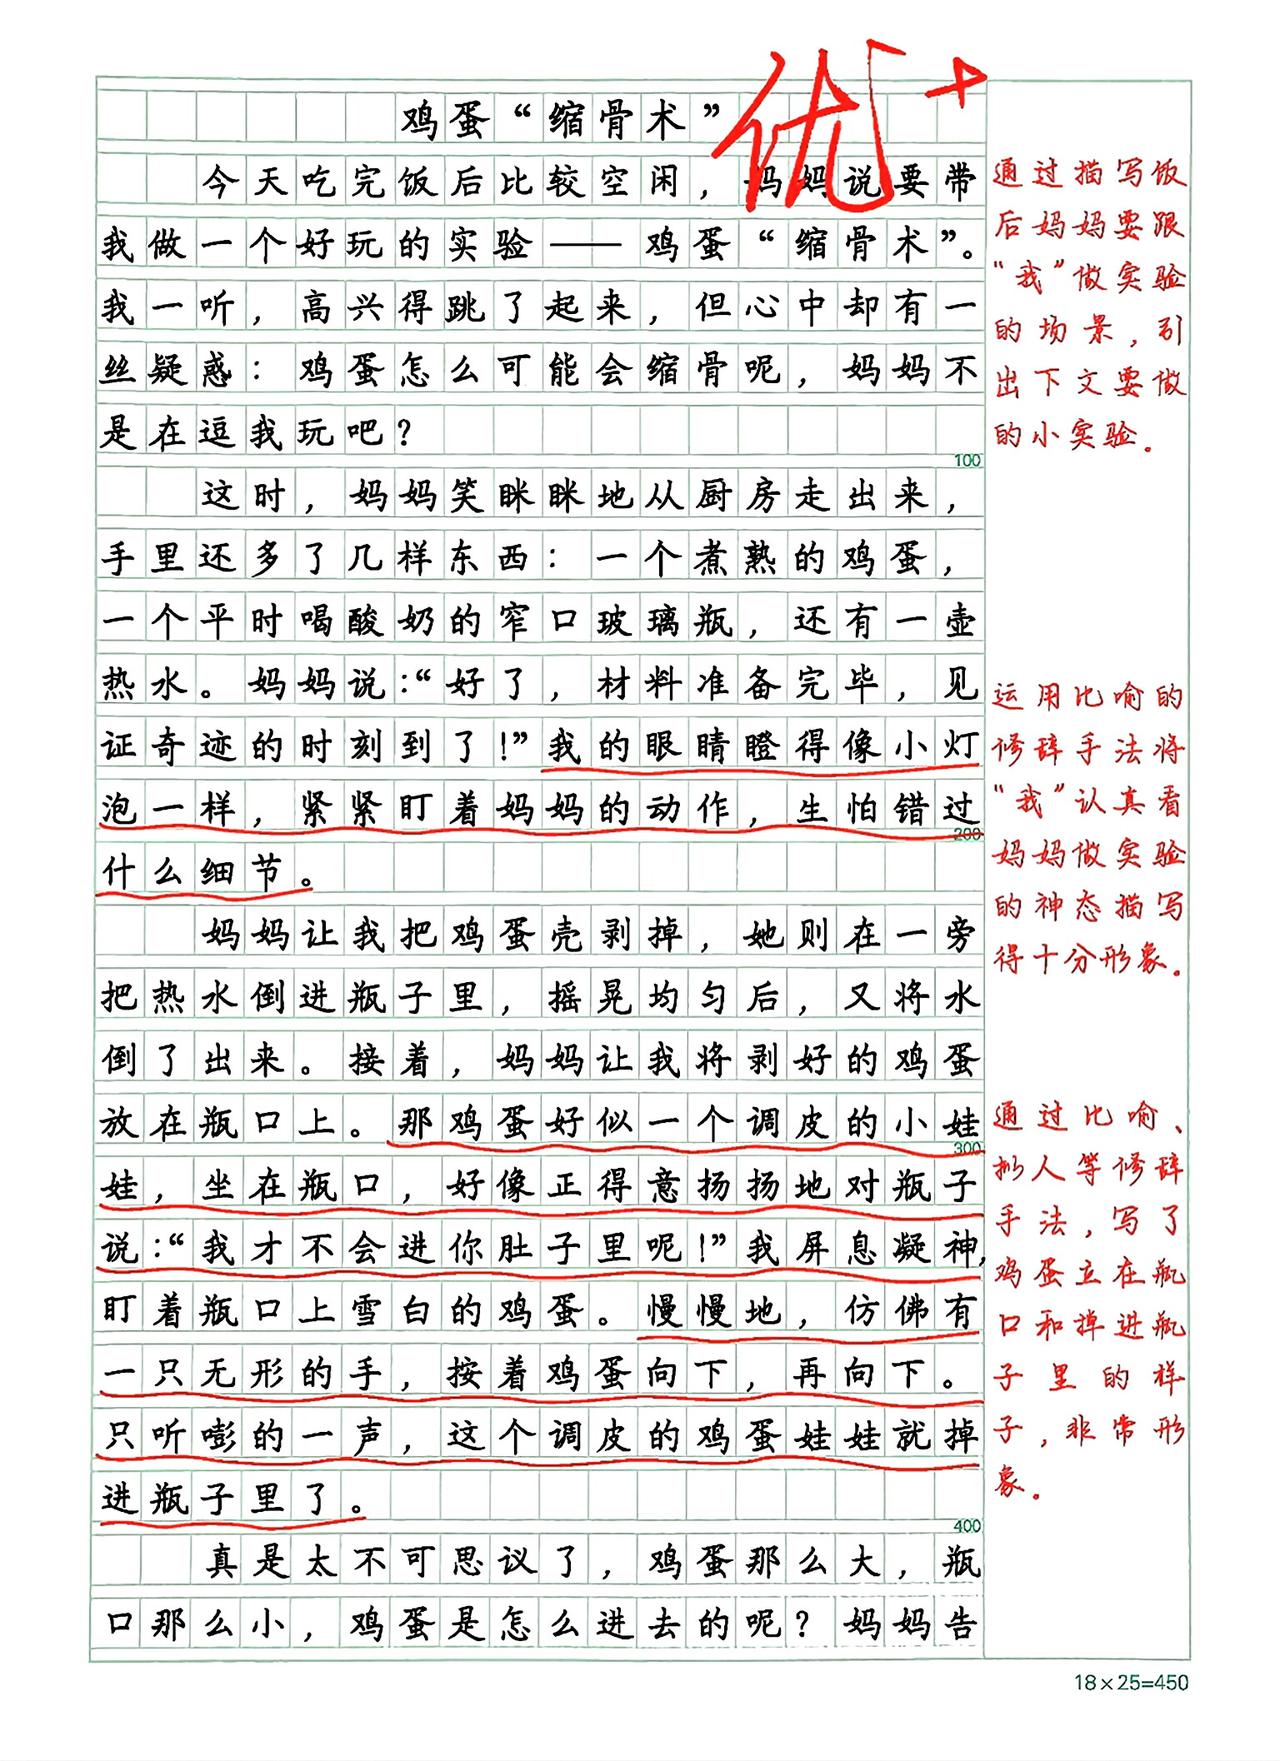 鸡蛋“缩骨术”
优+
今天吃完饭后比较空闲，妈妈说要带
我做一个好玩的实验——鸡蛋“缩骨术”。
我一听，高兴得跳了起来，但心中却有一
丝疑惑：鸡蛋怎么可能会缩骨呢，妈妈不
是在逗我玩吧？
100
这时，妈妈笑眯眯地从厨房走出来，
手里还多了几样东西：一个煮熟的鸡蛋，
一个平时喝酸奶的窄口玻璃瓶，还有一壶
热水。妈妈说：“好了，材料准备完毕，见
证奇迹的时刻到了！”我的眼睛瞪得像小灯
泡一样，紧紧盯着妈妈的动作，生怕错过
200
什么细节。
妈妈让我把鸡蛋壳剥掉，她则在一旁
把热水倒进瓶子里，摇晃均匀后，又将水
倒了出来。接着，妈妈让我将剥好的鸡蛋
放在瓶口上。那鸡蛋好似一个调皮的小娃
300
娃，坐在瓶口，好像正得意扬扬地对瓶子
说：“我才不会进你肚子里呢！”我屏息凝神，
盯着瓶口上雪白的鸡蛋。慢慢地，仿佛有
一只无形的手，按着鸡蛋向下，再向下。
只听嘭的一声，这个调皮的鸡蛋娃娃就掉
进瓶子里了。
400
真是太不可思议了，鸡蛋那么大，瓶
口那么小，鸡蛋是怎么进去的呢？妈妈告
18×25=450
通过描写饭
后妈妈要跟
“我”做实验
的场景，引
出下文要做
的小实验。
运用比喻的
修辞手法将
“我”认真看
妈妈做实验
的神态描写
得十分形象。
通过比喻、
拟人等修辞
手法，写了
鸡蛋立在瓶
口和掉进瓶
子里的样
子，非常形
象。